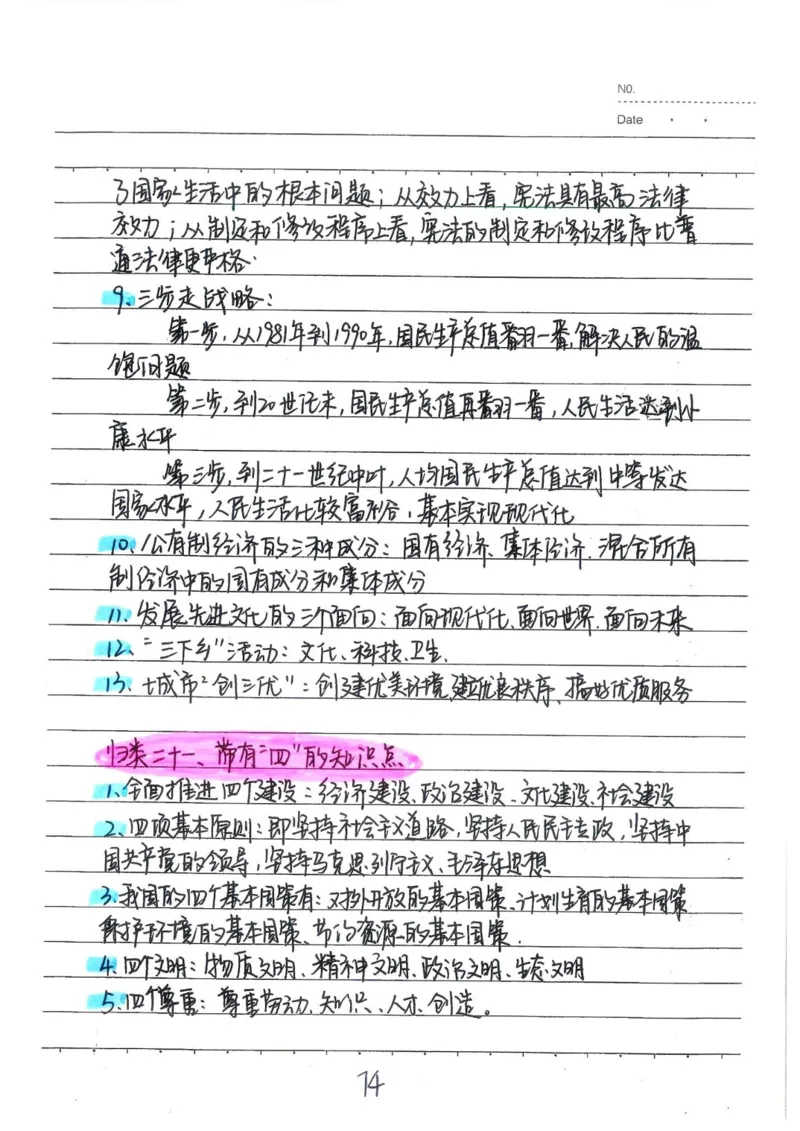 NO.
Date
了国家生活中的根本问题；从效力上看，宪法具有最高法律
效力；从制定和修改程序上看，宪法的制定和修改程序比普
通法律更严格.
9、三步走战略：
第一步，从1981年到1990年，国民生产总值翻一番，解决人民的温
饱问题
第二步，到20世纪末，国民生产总值再翻一番，人民生活达到小
康水平
第三步，到二十一世纪中叶，人均国民生产总值达到中等发达
国家水平，人民生活比较富裕，基本实现现代化
10、公有制经济的三种成分：国有经济、集体经济、混合所有
制经济中的国有成分和集体成分
11、发展先进文化的三个面向：面向现代化、面向世界、面向未来
12、“三下乡”活动：文化、科技、卫生.
13、城市“创三优”：创建优美环境、建立优良秩序、搞好优质服务
归类二十一、带有“四”的知识点
1、全面推进四个建设：经济建设、政治建设、文化建设、社会建设
2、四项基本原则：即坚持社会主义道路，坚持人民民主专政，坚持中
国共产党的领导，坚持马克思列宁主义、毛泽东思想
3、我国的四个基本国策有：对外开放的基本国策、计划生育的基本国策
保护环境的基本国策、节约资源的基本国策.
4、四个文明：物质文明、精神文明、政治文明、生态文明
5、四个尊重：尊重劳动、知识、人才、创造。
14